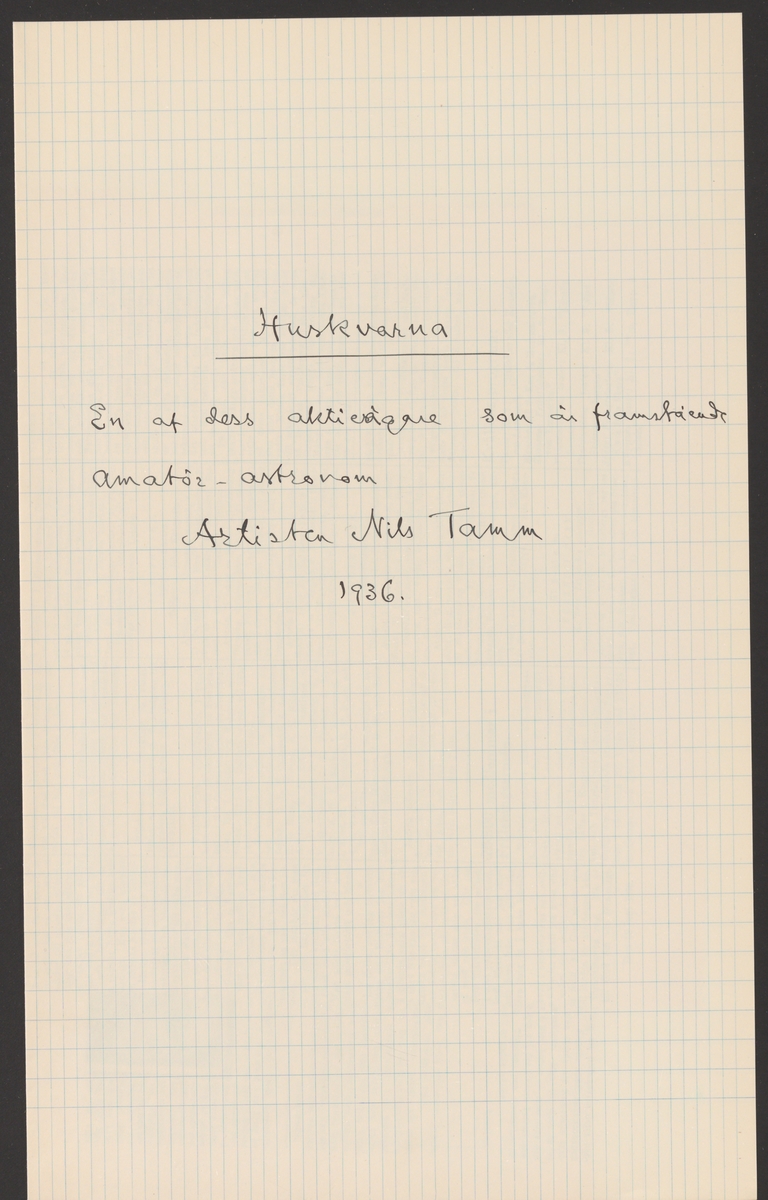 Huskvarna
En af dess aktieägare som är framstående
amatör - astronom
Artisten Nils Tamm
1936.